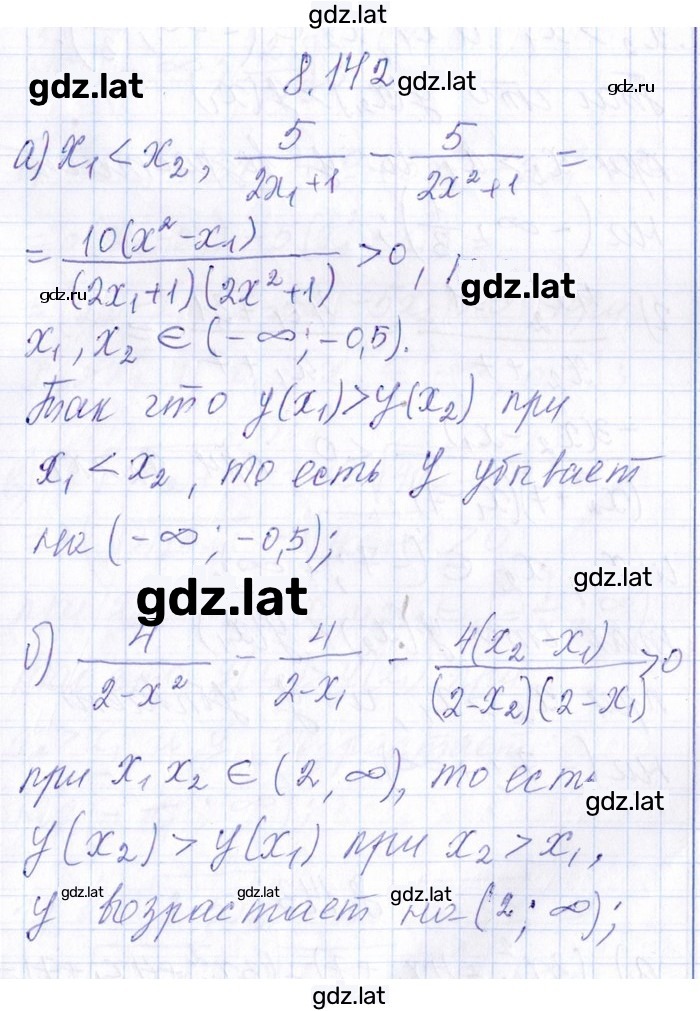 gdz.lat
8.142
gdz.lat
gdz.lat
gdz.ru
а) x₁ < x₂, 5/(2x₁+1) - 5/(2x²+1) =
= 10(x²-x₁)/((2x₁+1)(2x²+1)) > 0,
gdz.ru
gdz.lat
x₁, x₂ ∈ (-∞; -0,5).
Так что y(x₁)>y(x₂) при
x₁ < x₂, то есть y убывает
на (-∞; -0,5);
gdz.lat
gdz.lat
б) 4/(2-x²) - 4/(2-x₁) - 4(x₂-x₁)/((2-x₂)(2-x₁)) > 0
при x₁ x₂ ∈ (2, ∞), то есть
gdz.lat
y(x₂) > y(x₁) при x₂ > x₁,
gdz.lat
gdz.lat
gdz.lat
y возрастает на (2; ∞);
gdz.lat